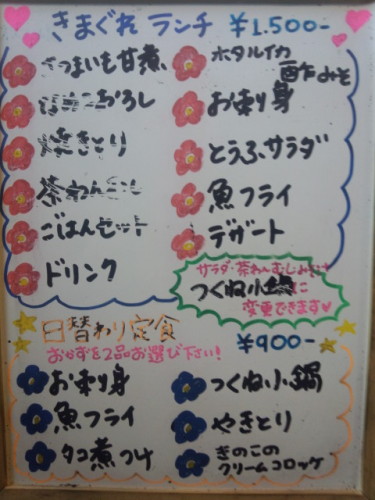 きまぐれ ランチ ¥1.500-
さつまいも甘煮
おろし
焼きとり
茶わんむし
ごはんセット
ドリンク
ホタルイカ
酢みそ
お刺り身
とうふサラダ
魚フライ
デザート
サラダ・茶わんむし
つくね小鍋に
変更できます♥
日替わり定食 ¥900-
おかずを2品お選び下さい!
お刺り身
魚フライ
タコ煮つけ
つくね小鍋
やきとり
きのこの
クリームコロッケ